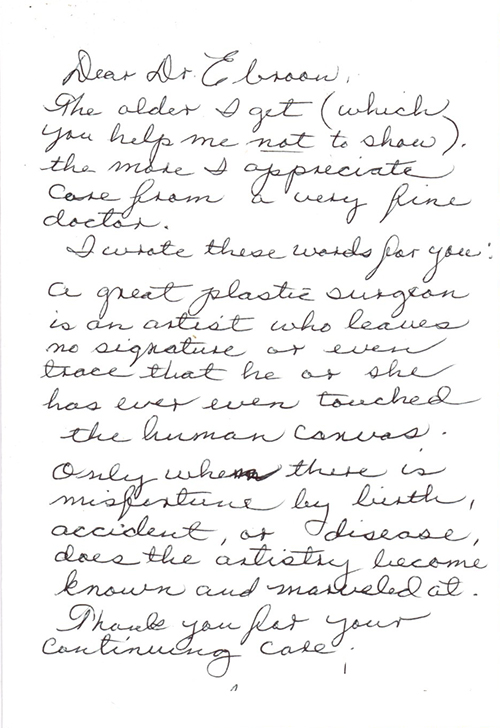 Dear Dr. Ebroon,
The older I get (which
you help me not to show).
the more I appreciate
care from a very fine
doctor.
I wrote these words for you:
a great plastic surgeon
is an artist who leaves
no signature or even
trace that he or she
has ever even touched
the human canvas.
Only when there is
misfortune by birth,
accident, or disease,
does the artistry become
known and marveled at.
Thank you for your
continuing care,